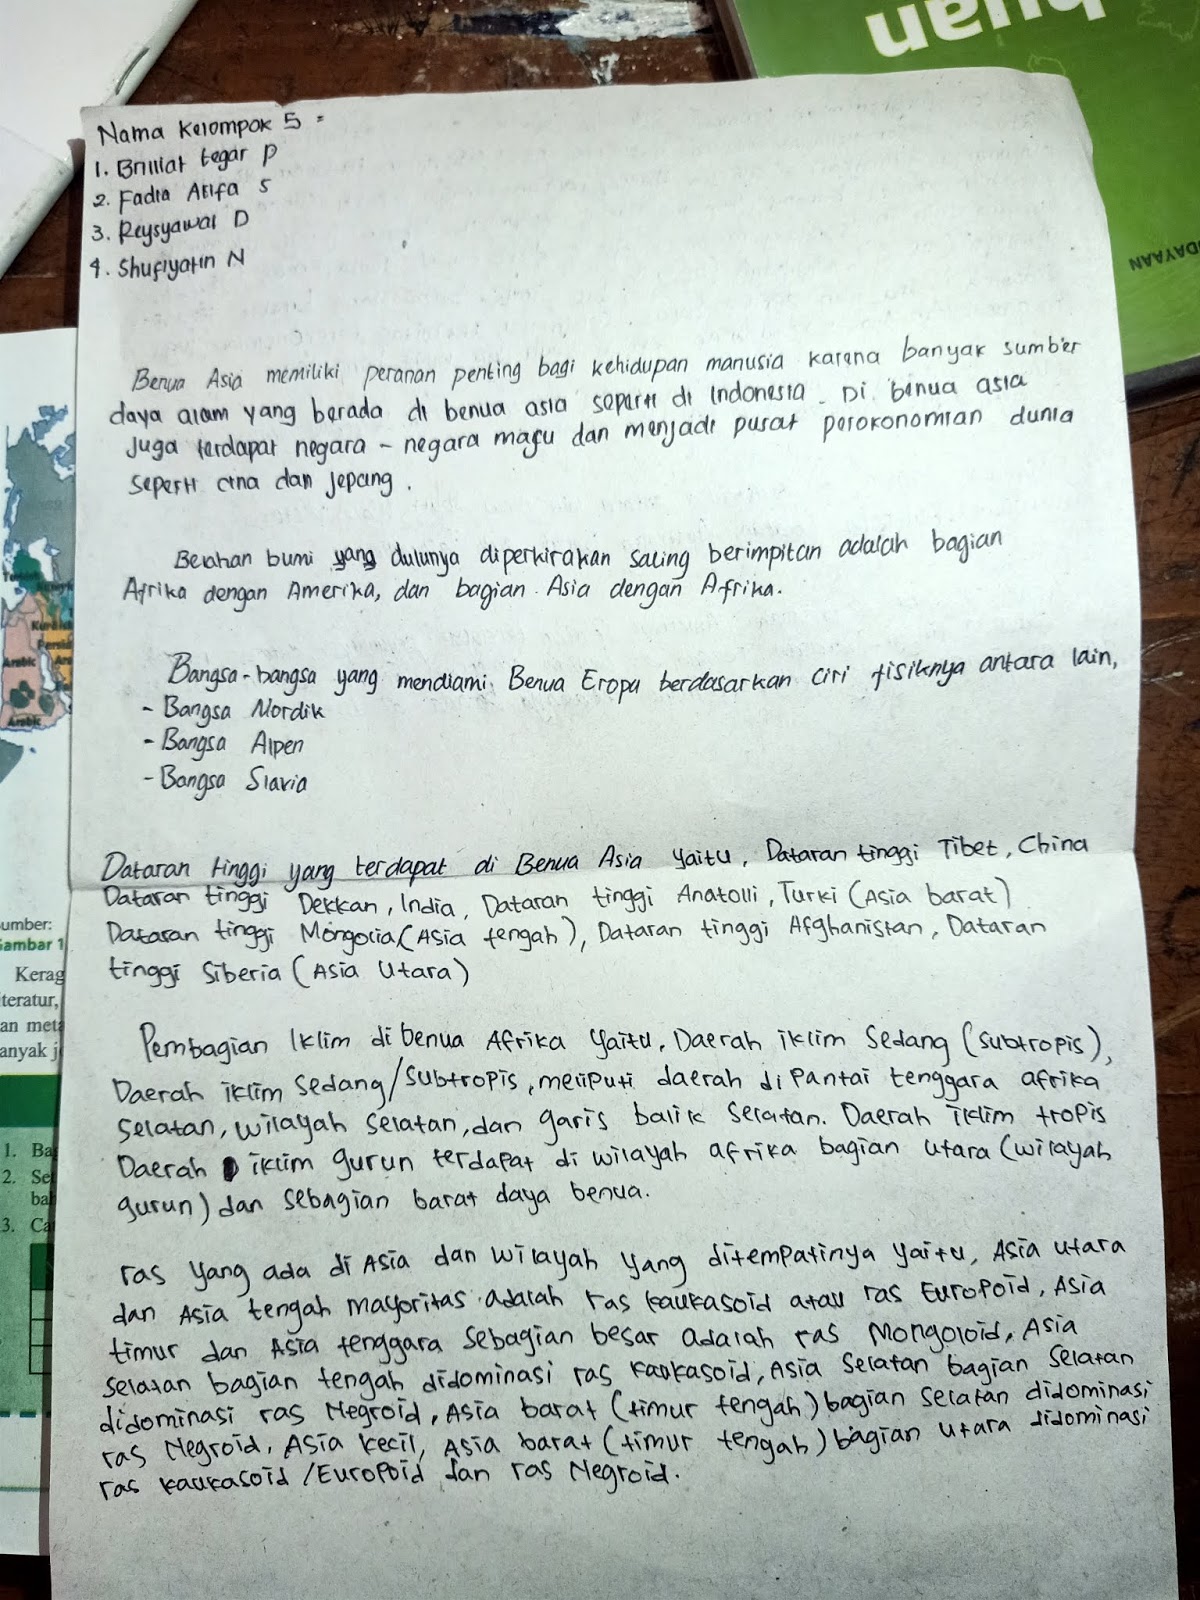 buan
DAYAAN
Nama Kelompok 5 =
1. Brilliat tegar P
2. Fadia Atifa S
3. Reysyawal D
4. Shufiyatin N
Benua Asia memiliki peranan penting bagi kehidupan manusia karena banyak sumber
daya alam yang berada di benua asia seperti di Indonesia. Di benua asia
Juga terdapat negara - negara maju dan menjadi pusat perekonomian dunia
seperti cina dan jepang.
Belahan bumi yang dulunya diperkirakan saling berimpitan adalah bagian
Afrika dengan Amerika, dan bagian Asia dengan Afrika.
Bangsa-bangsa yang mendiami Benua Eropa berdasarkan ciri fisiknya antara lain,
- Bangsa Nordik
- Bangsa Alpen
- Bangsa Slavia
Dataran tinggi yang terdapat di Benua Asia yaitu, Dataran tinggi Tibet, China
Dataran tinggi Dekkan, India, Dataran tinggi Anatolli, Turki (Asia barat)
Dataran tinggi Mongolia (Asia tengah), Dataran tinggi Afghanistan, Dataran
tinggi Siberia (Asia Utara)
Pembagian Iklim di benua Afrika yaitu, Daerah iklim Sedang (subtropis),
Daerah iklim sedang/subtropis, meliputi daerah di Pantai tenggara afrika
selatan, wilayah selatan, dan garis balik selatan. Daerah iklim tropis
Daerah iklim gurun terdapat di wilayah afrika bagian utara (wilayah
gurun) dan sebagian barat daya benua.
ras yang ada di Asia dan wilayah yang ditempatinya yaitu, Asia utara
dan Asia tengah mayoritas adalah ras kaukasoid atau ras Europoid, Asia
timur dan Asia tenggara sebagian besar adalah ras Mongoloid, Asia
selatan bagian tengah didominasi ras kaukasoid, Asia selatan bagian selatan
didominasi ras Negroid, Asia barat (timur tengah) bagian selatan didominasi
ras Negroid, Asia kecil, Asia barat (timur tengah) bagian utara didominasi
ras kaukasoid /Europoid dan ras Negroid.
Arabic
Arabic
umber:
Gambar 1
Kerag
teratur,
an meta
anyak j
1. Ba
2. Se
bah
3. Ca